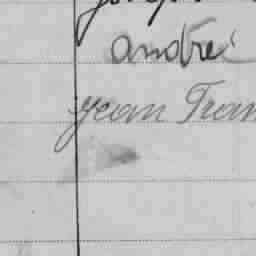 andré
Jean Fran